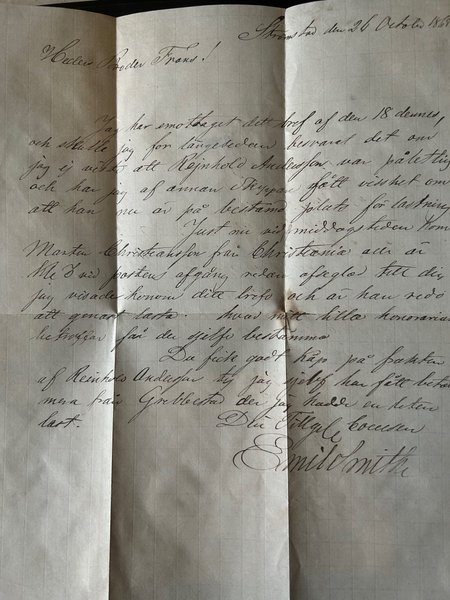 Strömstad den 26 October 18
Heders Broder Frans!
Jag har emottaget ditt bref af den 18 dennes,
och skulle jag för länge sedan besvarat det om
jag ej vetat att Reinhold Andersson var på
och har jag af annan Skeppare fått visshet om
att han nu är på bestämd plats för lastning
Just nu vid middagstiden kom
Martin Christiansson från Christiania och är
kl 3 vid postens afgång redan afseglad till dig
jag visade honom ditt bref och är han redo
att genast lasta. hvad mitt lilla honorarium
beträffar får du sjelf bestämma
Du fick godt köp på frakten
af Reinhold Andersson ty jag sjelf har fått betala
mera från Grebbestad der jag hade en liten
last.
Din Tillgif
Emil Smith